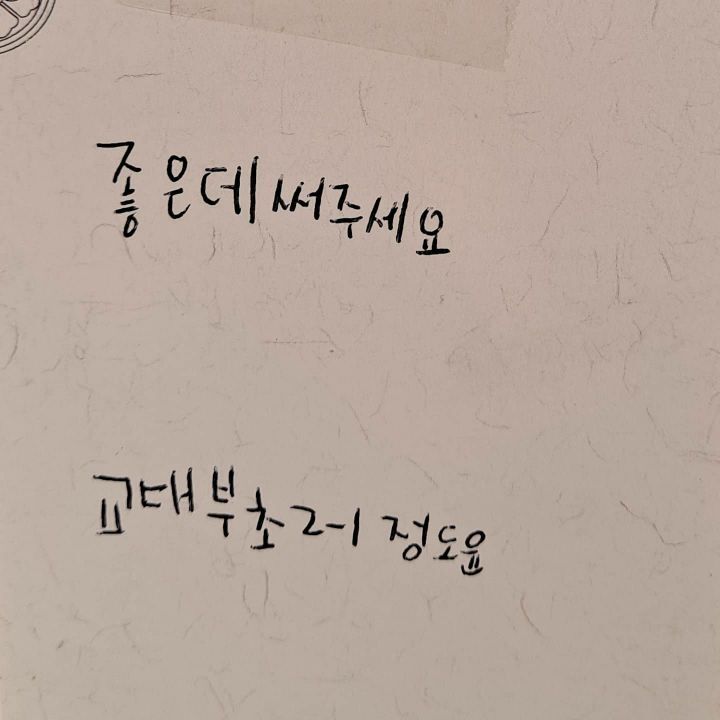 좋은데써주세요
교대부초 2-1 정도윤